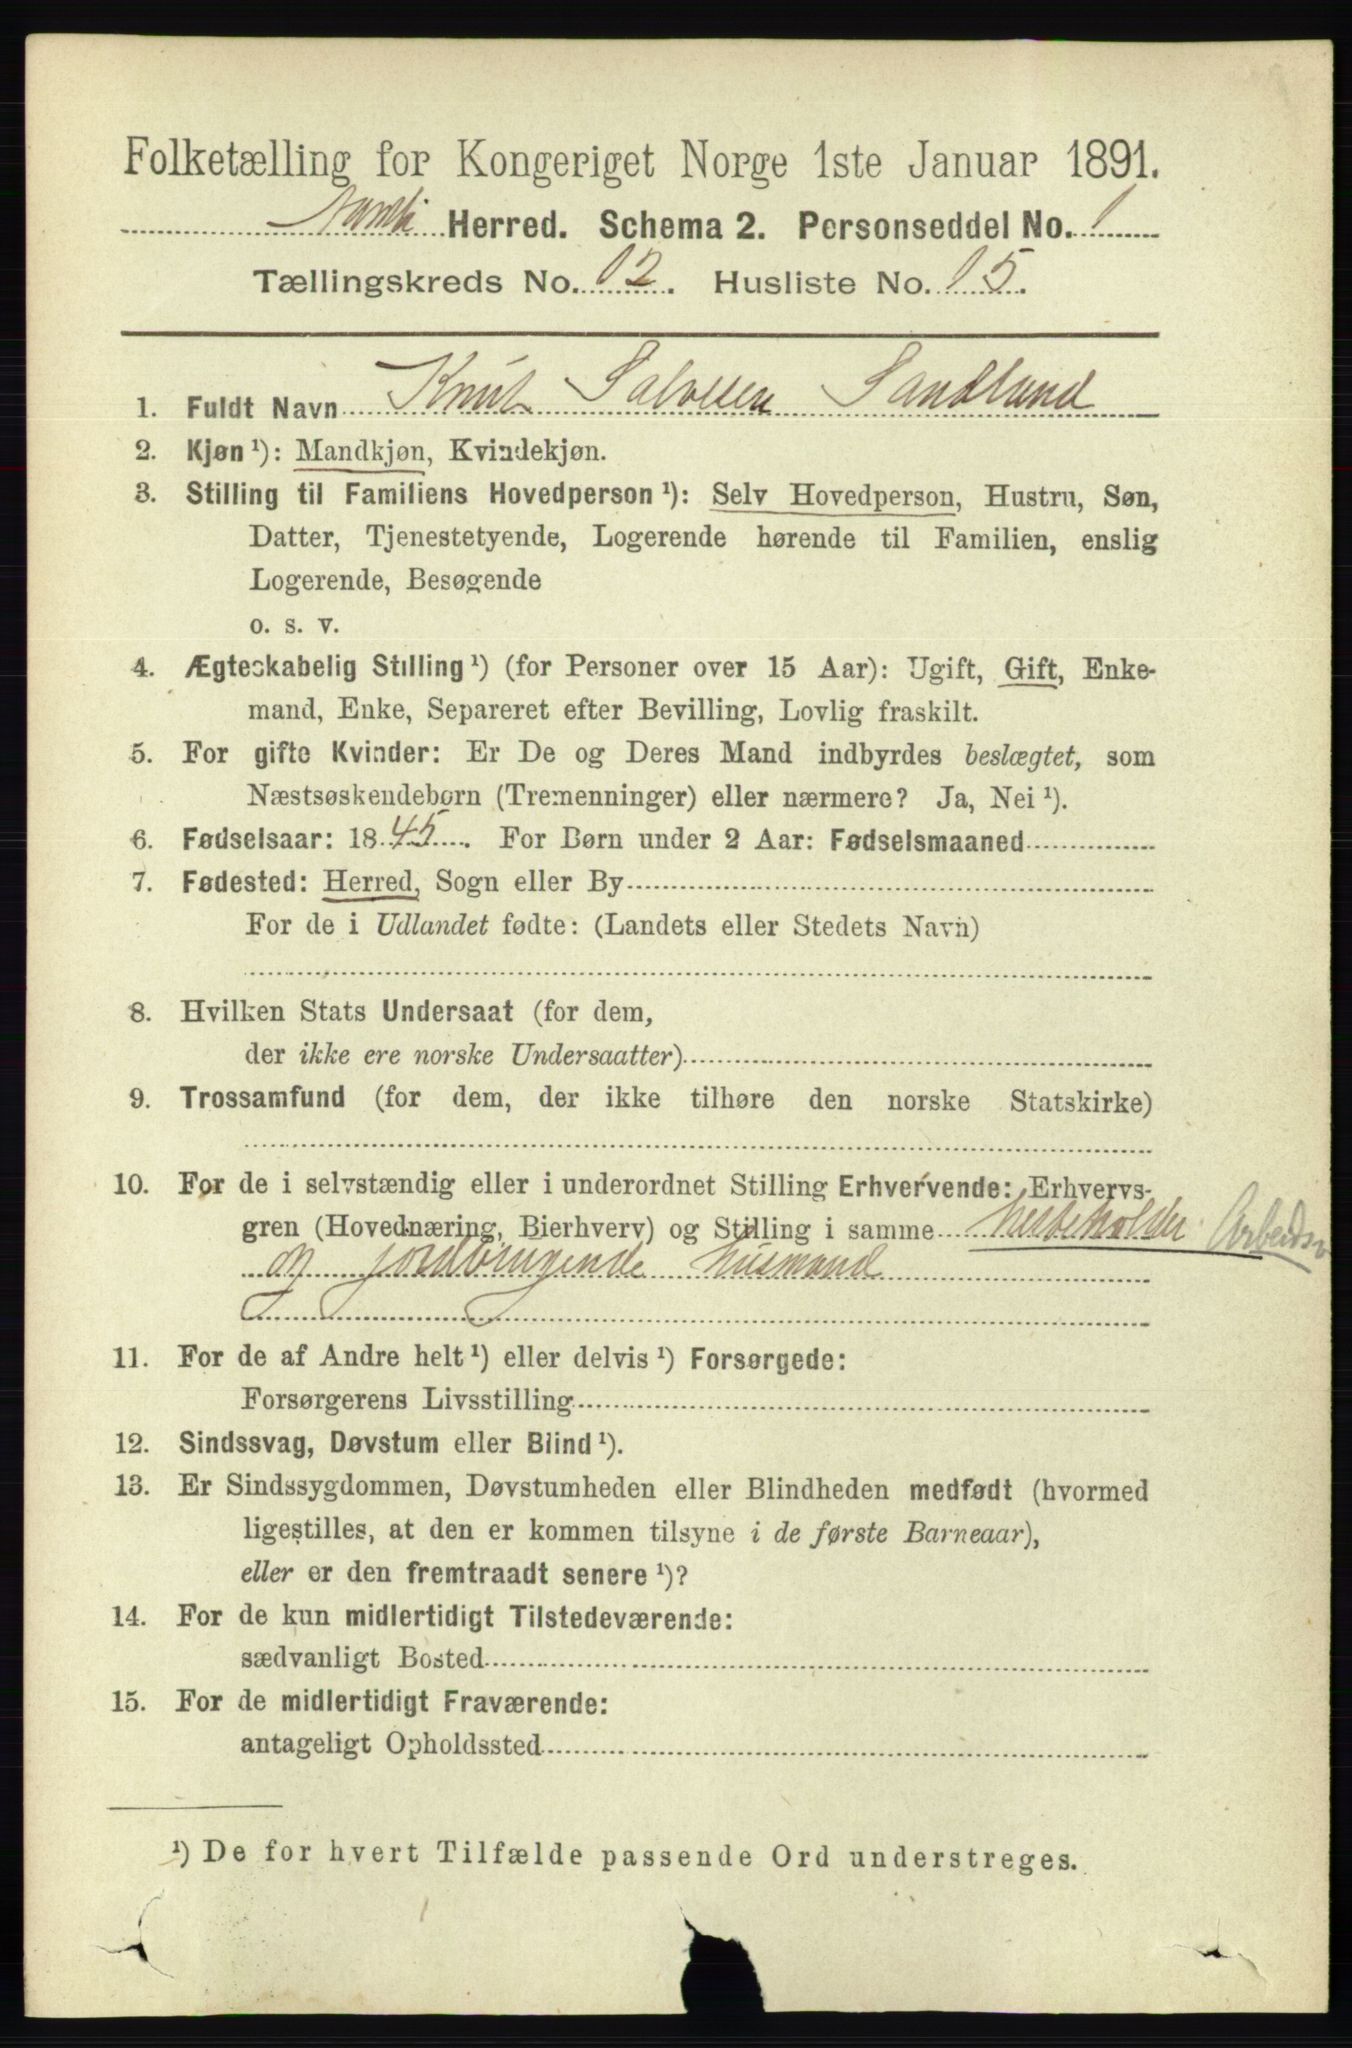 Folketælling for Kongeriget Norge 1ste Januar 1891.
Herred. Schema 2. Personseddel No. 1
Tællingskreds No. 12. Husliste No. 15.
1. Fuldt Navn Knut Salvesen Sandland
2. Kjøn ¹): Mandkjøn, Kvindekjøn.
3. Stilling til Familiens Hovedperson ¹): Selv Hovedperson, Hustru, Søn,
Datter, Tjenestetyende, Logerende hørende til Familien, enslig
Logerende, Besøgende
o. s. v.
4. Ægteskabelig Stilling ¹) (for Personer over 15 Aar): Ugift, Gift, Enke-
mand, Enke, Separeret efter Bevilling, Lovlig fraskilt.
5. For gifte Kvinder: Er De og Deres Mand indbyrdes beslægtet, som
Næstsøskendebørn (Tremenninger) eller nærmere? Ja, Nei ¹).
6. Fødselsaar: 1845. For Børn under 2 Aar: Fødselsmaaned
7. Fødested: Herred, Sogn eller By
For de i Udlandet fødte: (Landets eller Stedets Navn)
8. Hvilken Stats Undersaat (for dem,
der ikke ere norske Undersaatter)
9. Trossamfund (for dem, der ikke tilhøre den norske Statskirke)
10. For de i selvstændig eller i underordnet Stilling Erhvervende: Erhvervs-
gren (Hovednæring, Bierhverv) og Stilling i samme hesteholder Arbeidsv
og jordbrugende husmand
11. For de af Andre helt ¹) eller delvis ¹) Forsørgede:
Forsørgerens Livsstilling
12. Sindssvag, Døvstum eller Blind ¹).
13. Er Sindssygdommen, Døvstumheden eller Blindheden medfødt (hvormed
ligestilles, at den er kommen tilsyne i de første Barneaar),
eller er den fremtraadt senere ¹)?
14. For de kun midlertidigt Tilstedeværende:
sædvanligt Bosted
15. For de midlertidigt Fraværende:
antageligt Opholdssted
¹) De for hvert Tilfælde passende Ord understreges.